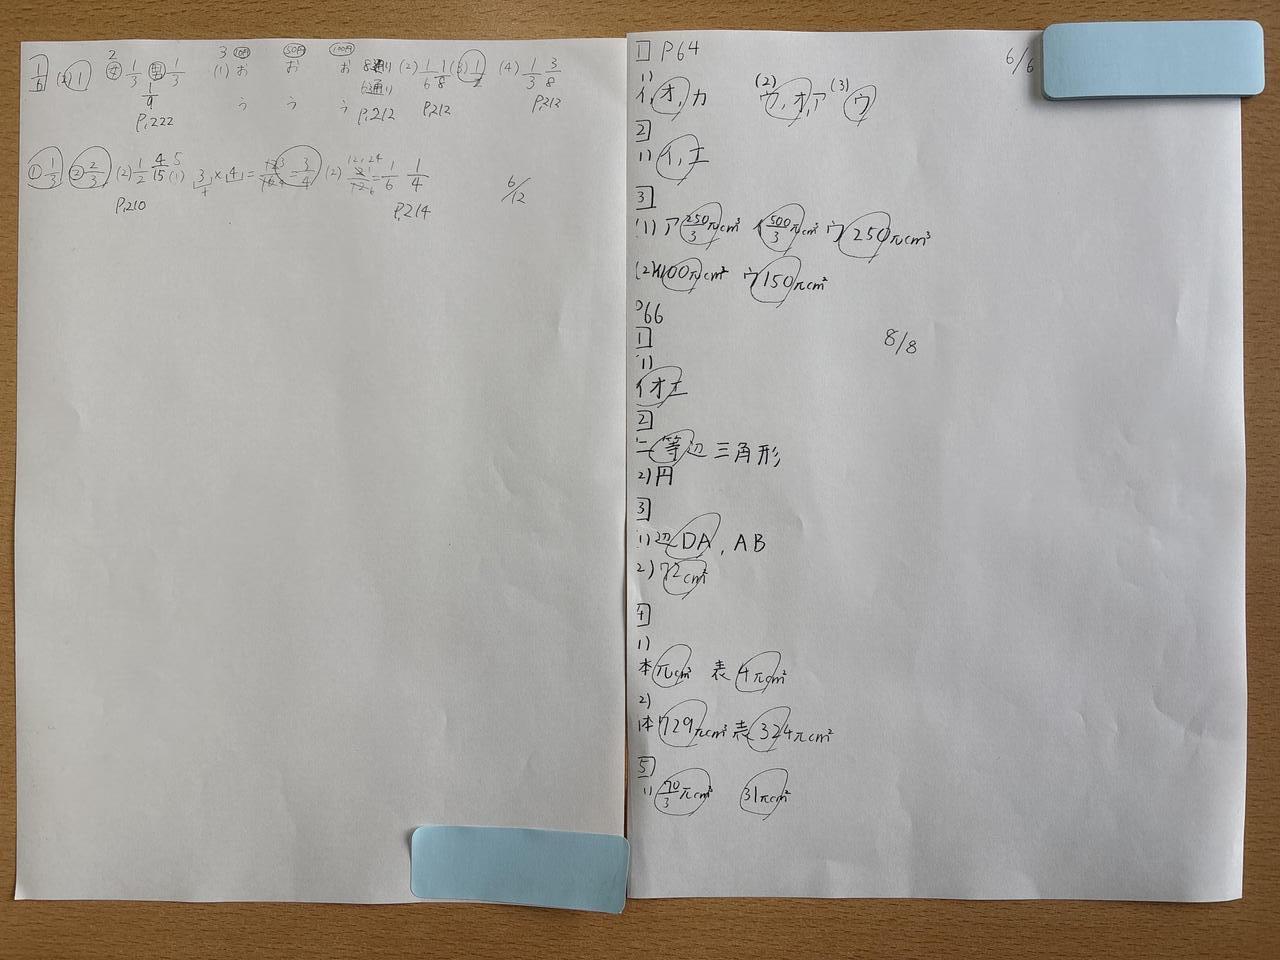 1/6 (2) 1 2 女 1/3 男 1/3 3 10円 50円 100円
1/9 (1) お お お 8通り (2) 1/6 1/8 (3) 1/2 (4) 1/3 3/8
う う う 6通り
P.222 P.212 P.212 P.212
① 1/3 ② 2/3 (2) 1/2 4/15 5 (1) 3 × 4 = = 3/4 (2) = 1/6 1/4
P.210 P.214 6/12
1 P64 6/6
1)
イ,オ,カ (2) ウ,オ,ア (3) ウ
2
1) イ,エ
3
(1) ア 250/3 πcm³ イ 500/3 πcm³ ウ 250πcm³
(2) イ100πcm² ウ 150πcm²
P66
1 8/8
1)
イオエ
2
二等辺三角形
2) 円
3
1) 辺DA, AB
2) 72cm²
4
1)
体 πcm³ 表 4πcm²
2)
体 729πcm³ 表 324πcm²
5
1) 70/3 πcm³ 31πcm²